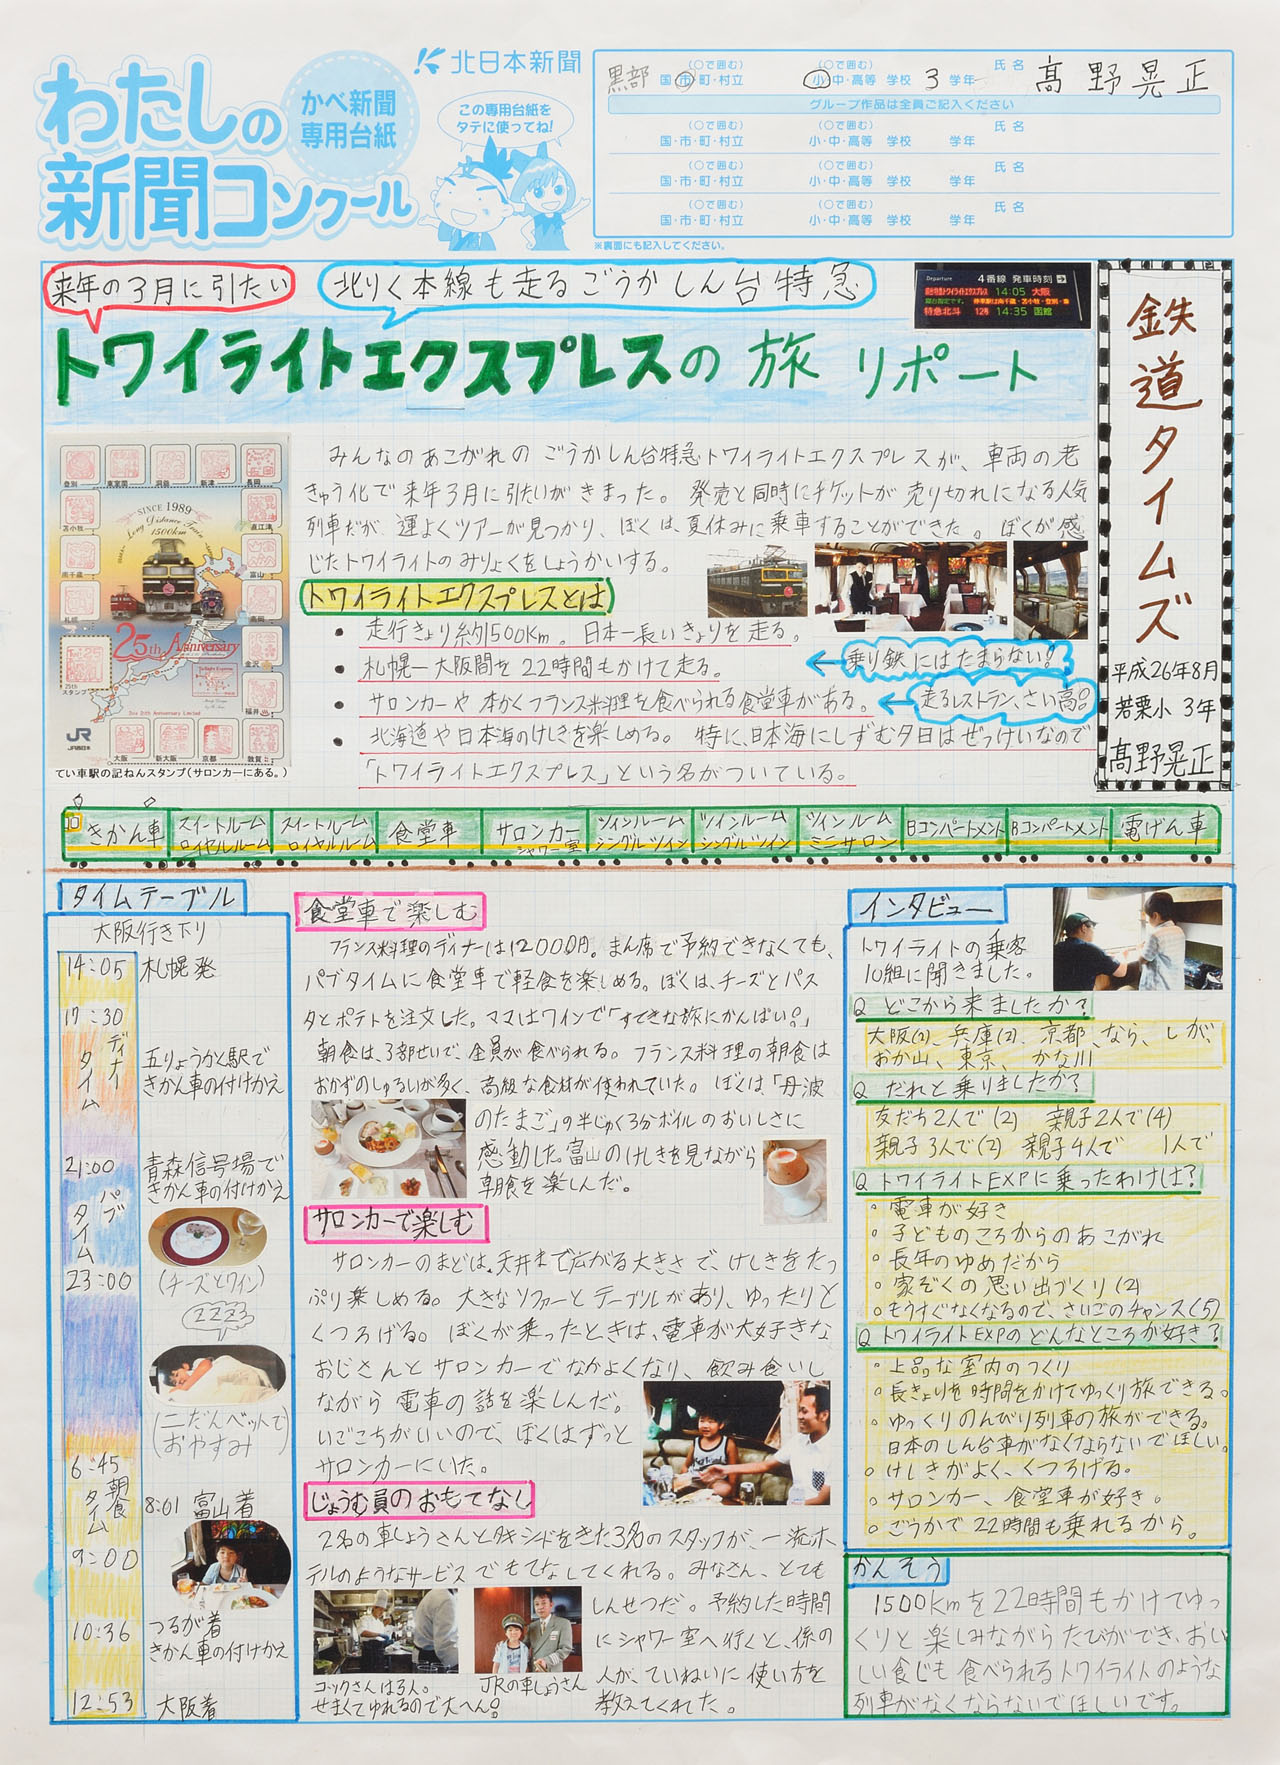 わたしの
新聞コンクール
かべ新聞
専用台紙
北日本新聞
この専用台紙を
タテに使ってね!
黒部
(○で囲む)
国・市・町・村立
(○で囲む)
小・中・高等 学校 3 学年
氏名
髙野晃正
グループ作品は全員ご記入ください
(○で囲む) (○で囲む) 氏名
国・市・町・村立 小・中・高等 学校 学年
(○で囲む) (○で囲む) 氏名
国・市・町・村立 小・中・高等 学校 学年
(○で囲む) (○で囲む) 氏名
国・市・町・村立 小・中・高等 学校 学年
※裏面にも記入してください。
鉄道タイムズ
平成26年8月
若栗小 3年
髙野晃正
来年の3月に引たい
北りく本線も走るごうかしん台特急
トワイライトエクスプレスの旅 リポート
Departure 4番線 発車時刻
14:05 大阪
特急北斗 12号 14:35 函館
みんなのあこがれの ごうかしん台特急トワイライトエクスプレスが、車両の老
きゅう化で来年3月に引たいがきまった。発売と同時にチケットが売り切れになる人気
列車だが、運よくツアーが見つかり、ぼくは、夏休みに乗車することができた。ぼくが感
じたトワイライトのみりょくをしょうかいする。
登別
東室蘭
洞爺
新津
長岡
苫小牧
直江津
南千歳
富山
札幌
高岡
金沢
福井
25th
スタンプ
大阪
新大阪
京都
敦賀
SINCE 1989
Long Distance Train
1500km
25th Anniversary
JR
JR西日本
てい車駅の記ねんスタンプ(サロンカーにある。)
トワイライトエクスプレスとは
• 走行きょり約1500Km。日本一長いきょりを走る。
• 札幌ー大阪間を22時間もかけて走る。
←乗り鉄にはたまらない!
• サロンカーや本かくフランス料理を食べられる食堂車がある。
←走るレストラン、さい高!
• 北海道や日本海のけしきを楽しめる。特に、日本海にしずむ夕日はぜっけいなので
「トワイライトエクスプレス」という名がついている。
きかん車
スイートルーム
ロイヤルルーム
スイートルーム
ロイヤルルーム
食堂車
サロンカー
シャワー室
ツインルーム
シングルツイン
ツインルーム
シングルツイン
ツインルーム
ミニサロン
Bコンパートメント
Bコンパートメント
電げん車
タイムテーブル
大阪行き下り
14:05 札幌発
17:30
ディナータイム
五りょうかく駅で
きかん車の付けかえ
21:00
パブタイム
青森信号場で
きかん車の付けかえ
(チーズとワイン)
23:00
ZZZZ
(二だんベットで
おやすみ)
6:45
朝食タイム
8:01 富山着
9:00
10:36 つるが着
きかん車の付けかえ
12:53 大阪着
食堂車で楽しむ
フランス料理のディナーは12000円。まん席で予約できなくても、
パブタイムに食堂車で軽食を楽しめる。ぼくは、チーズとパス
タとポテトを注文した。ママはワインで「すてきな旅にかんぱい!」
朝食は、3部せいで、全員が食べられる。フランス料理の朝食は
おかずのしゅるいが多く、高級な食材が使われていた。ぼくは「丹波
のたまご」の半じゅく3分ボイルのおいしさに
感動した。富山のけしきを見ながら
朝食を楽しんだ。
サロンカーで楽しむ
サロンカーのまどは、天井まで広がる大きさで、けしきをたっ
ぷり楽しめる。大きなソファーとテーブルがあり、ゆったりと
くつろげる。ぼくが乗ったときは、電車が大好きな
おじさんとサロンカーでなかよくなり、飲み食いし
ながら電車の話を楽しんだ。
いごこちがいいので、ぼくはずっと
サロンカーにいた。
じょうむ員のおもてなし
2名の車しょうさんとタキシドをきた3名のスタッフが、一流ホ
テルのようなサービスでもてなしてくれる。みなさん、とても
しんせつだ。予約した時間
にシャワー室へ行くと、係の
人が、ていねいに使い方を
教えてくれた。
コックさんは3人。
せまくてゆれるので大へん!
JRの車しょうさん
インタビュー
トワイライトの乗客
10組に聞きました。
Q どこから来ましたか?
大阪(2)、兵庫(2)、京都、なら、しが、
おか山、東京、かな川
Q だれと乗りましたか?
友だち2人で(2) 親子2人で(4)
親子3人で(2) 親子4人で 1人で
Q トワイライトEXPに乗ったわけは?
○ 電車が好き
○ 子どものころからのあこがれ
○ 長年のゆめだから
○ 家ぞくの思い出づくり(2)
○ もうすぐなくなるので、さいごのチャンス(5)
Q トワイライトEXPのどんなところが好き?
○ 上品な室内のつくり
○ 長きょりを時間をかけてゆっくり旅できる。
○ ゆっくりのんびり列車の旅ができる。
日本のしん台車がなくならないでほしい。
○ けしきがよく、くつろげる。
○ サロンカー、食堂車が好き。
○ ごうかで22時間も乗れるから。
かんそう
1500Kmを22時間もかけてゆっ
くりと楽しみながらたびができ、おい
しい食じも食べられるトワイライトのような
列車がなくならないでほしいです。